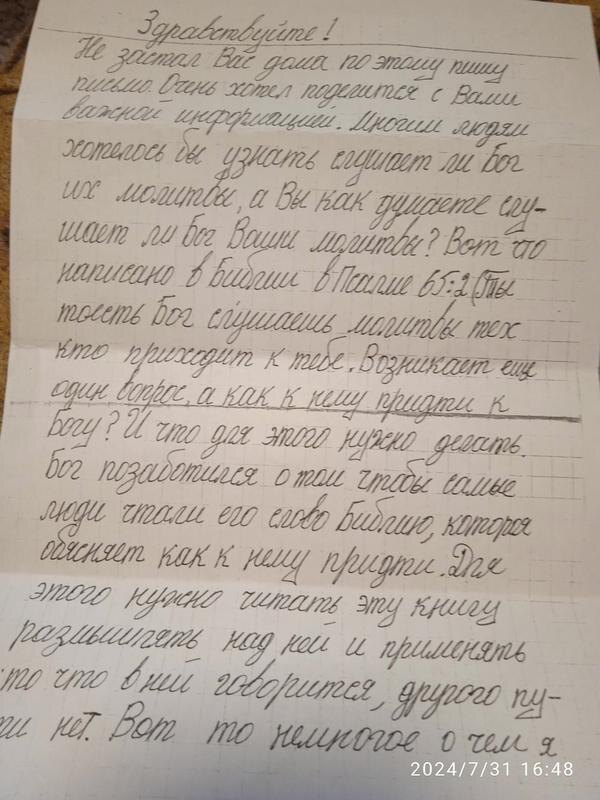 Здравствуйте!
Не застал Вас дома по этому пишу
письмо. Очень хотел поделится с Вами
важной информацией. Многим людям
хотелось бы узнать слушает ли Бог
их молитвы, а Вы как думаете слу-
шает ли Бог Ваши молитвы? Вот что
написано в Библии в Псалме 65:2 (Ты
тоесть Бог слушаешь молитвы тех
кто приходит к тебе. Возникает еще
один вопрос, а как к нему придти к
Богу? И что для этого нужно делать.
Бог позаботился о том чтобы самые
люди чтали его слово Библию, которая
обясняет как к нему придти. Для
этого нужно читать эту книгу
размышлять над ней и применять
то что в ней говорится, другого пу-
ти нет. Вот то немногое о чем я
2024/7/31 16:48